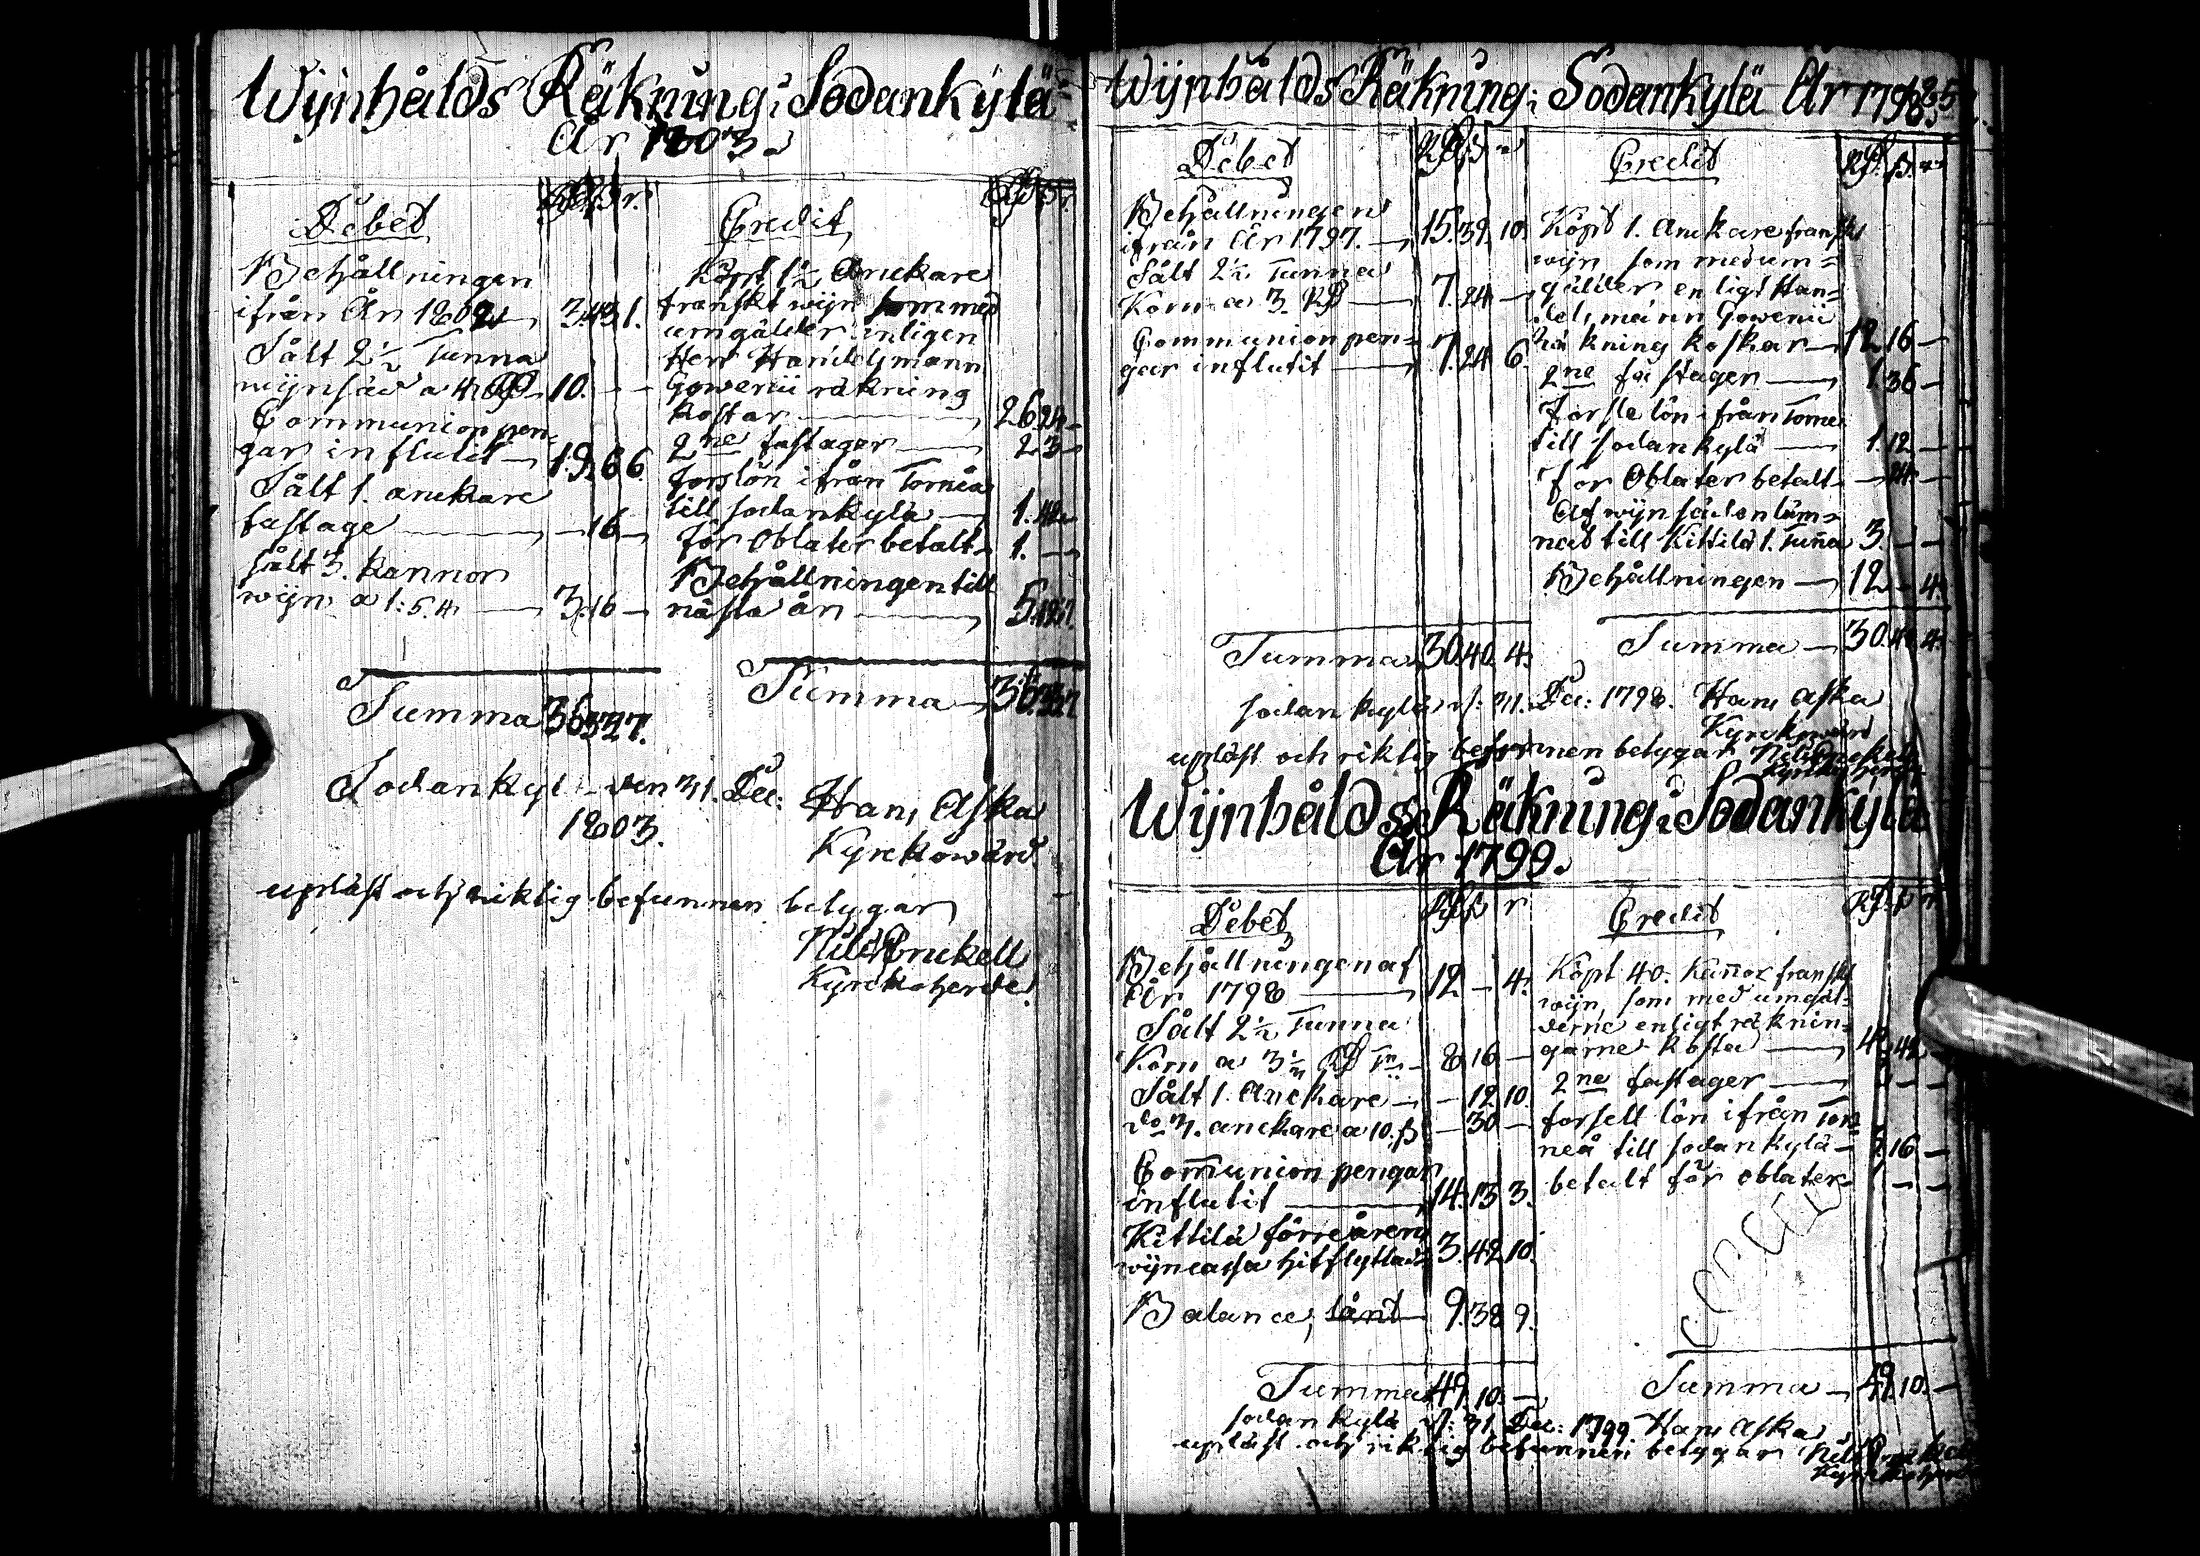 Wijnhålds Räkning i Sodankylä
År 1803.
Debet
Behållningen
ifrån År 1802 3.43.1.
Sålt 2 1/2 Tunna
wijnsäd a 4 Rd 10. — —
Communion pen-
gar influtit 19.6.6.
Sålt 1. anckare
fastage — 16 —
sålt 3. kannor
wijn a 1:5.4 3.16 —
Summa 36.33.7.
Credit
Köpt 1 1/2 Anckare
franskt wijn som med
umgälder enligen
Herr Handelsmann
Gowenii räkning
kostar 26.24 —
2ne fastager 2.3 —
forslön ifrån Torneå
till sodankylä 1.
för Oblater betalt 1. —
Behållningen till
nästa år 5.
Summa 36.33.7.
Sodankyl den 31. Dec: Hans Aska
1803. Kyrckowärd
upläst och riktig befunnen betygar
Nils Enckell
Kyrckoherde.
Wijnhålds Räkning i Sodankylä År 1798.
Debet Rd ß r
Behållningen
ifrån År 1797. 15.39.10.
Sålt 2 1/2 Tunna
Korn a 3. Rd 7.24 —
Communion pen-
gar influtit 7.24 6.
Summa 30.40.4.
Credit Rd. ß. r
Köpt 1. Anckare franskt
wijn som med um-
gälder enligt Han-
delsmann Gowenii
Räkning kostar 12.16 —
2ne fastager 1.36 —
Forsle lön ifrån Torne
till sodankylä 1.12 —
För Oblater betalt — 24 —
Af wijnsäden läm-
nad till Kittilä 1. Tunna 3. — —
Behållningen 12 — 4.
Summa 30.40.4.
sodankylä d: 31. Dec: 1798. Hans Aska
Kyrckowärd
upläst och riktig befunnen betygar Nils Enckell
Kyrckoherde
Wijnhålds Räkning i Sodankylä
År 1799.
Debet Rd ß r
Behållningen af
År 1798 12 — 4.
Sålt 2 1/2 Tunna
Korn a 3 1/2 Rd Tn 8.16 —
Sålt 1. Anckare — 12.10.
do 3. anckare a 10. ß — 30 —
Communion pengar
influtit 14.13 3.
Kittilä förre årens
wijncassa hitflyttad 3.42.10.
Balance, lånt 9.38 9.
Summa 49.10. —
Credit Rd ß r
Köpt 40. Kannor franskt
wijn, som med umgäl-
derne enligt räknin-
garne kosta
2ne fastager
forsell lön ifrån Tor-
neå till sodankylä 16 —
betalt för oblater 1 — —
Summa 49.10. —
sodankylä d: 31 Dec: 1799. Hans Aska
upläst och riktig befunnen betygar Nils Enckell
Kyrckoherde